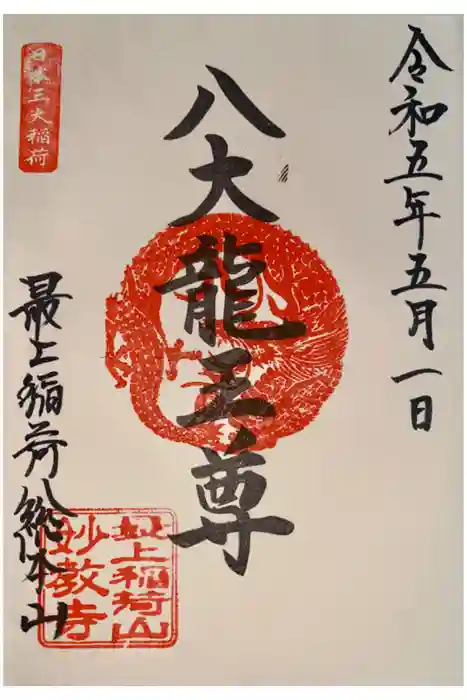 令和五年五月一日
八大龍王尊
日本三大稲荷
最上稲荷総本山
最上稲荷山
妙教寺